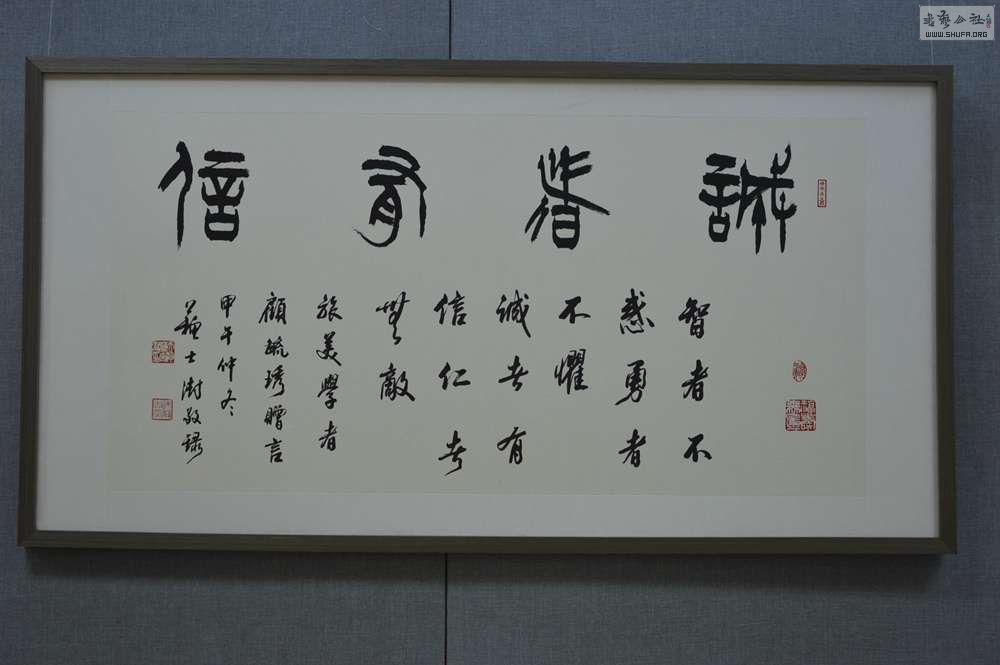 誠者有信
智者不
惑勇者
不懼
誠者有
信仁者
無敵
旅美學者
顧毓琇贈言
甲午仲冬
蘇士澍敬錄
WWW.SHUFA.ORG